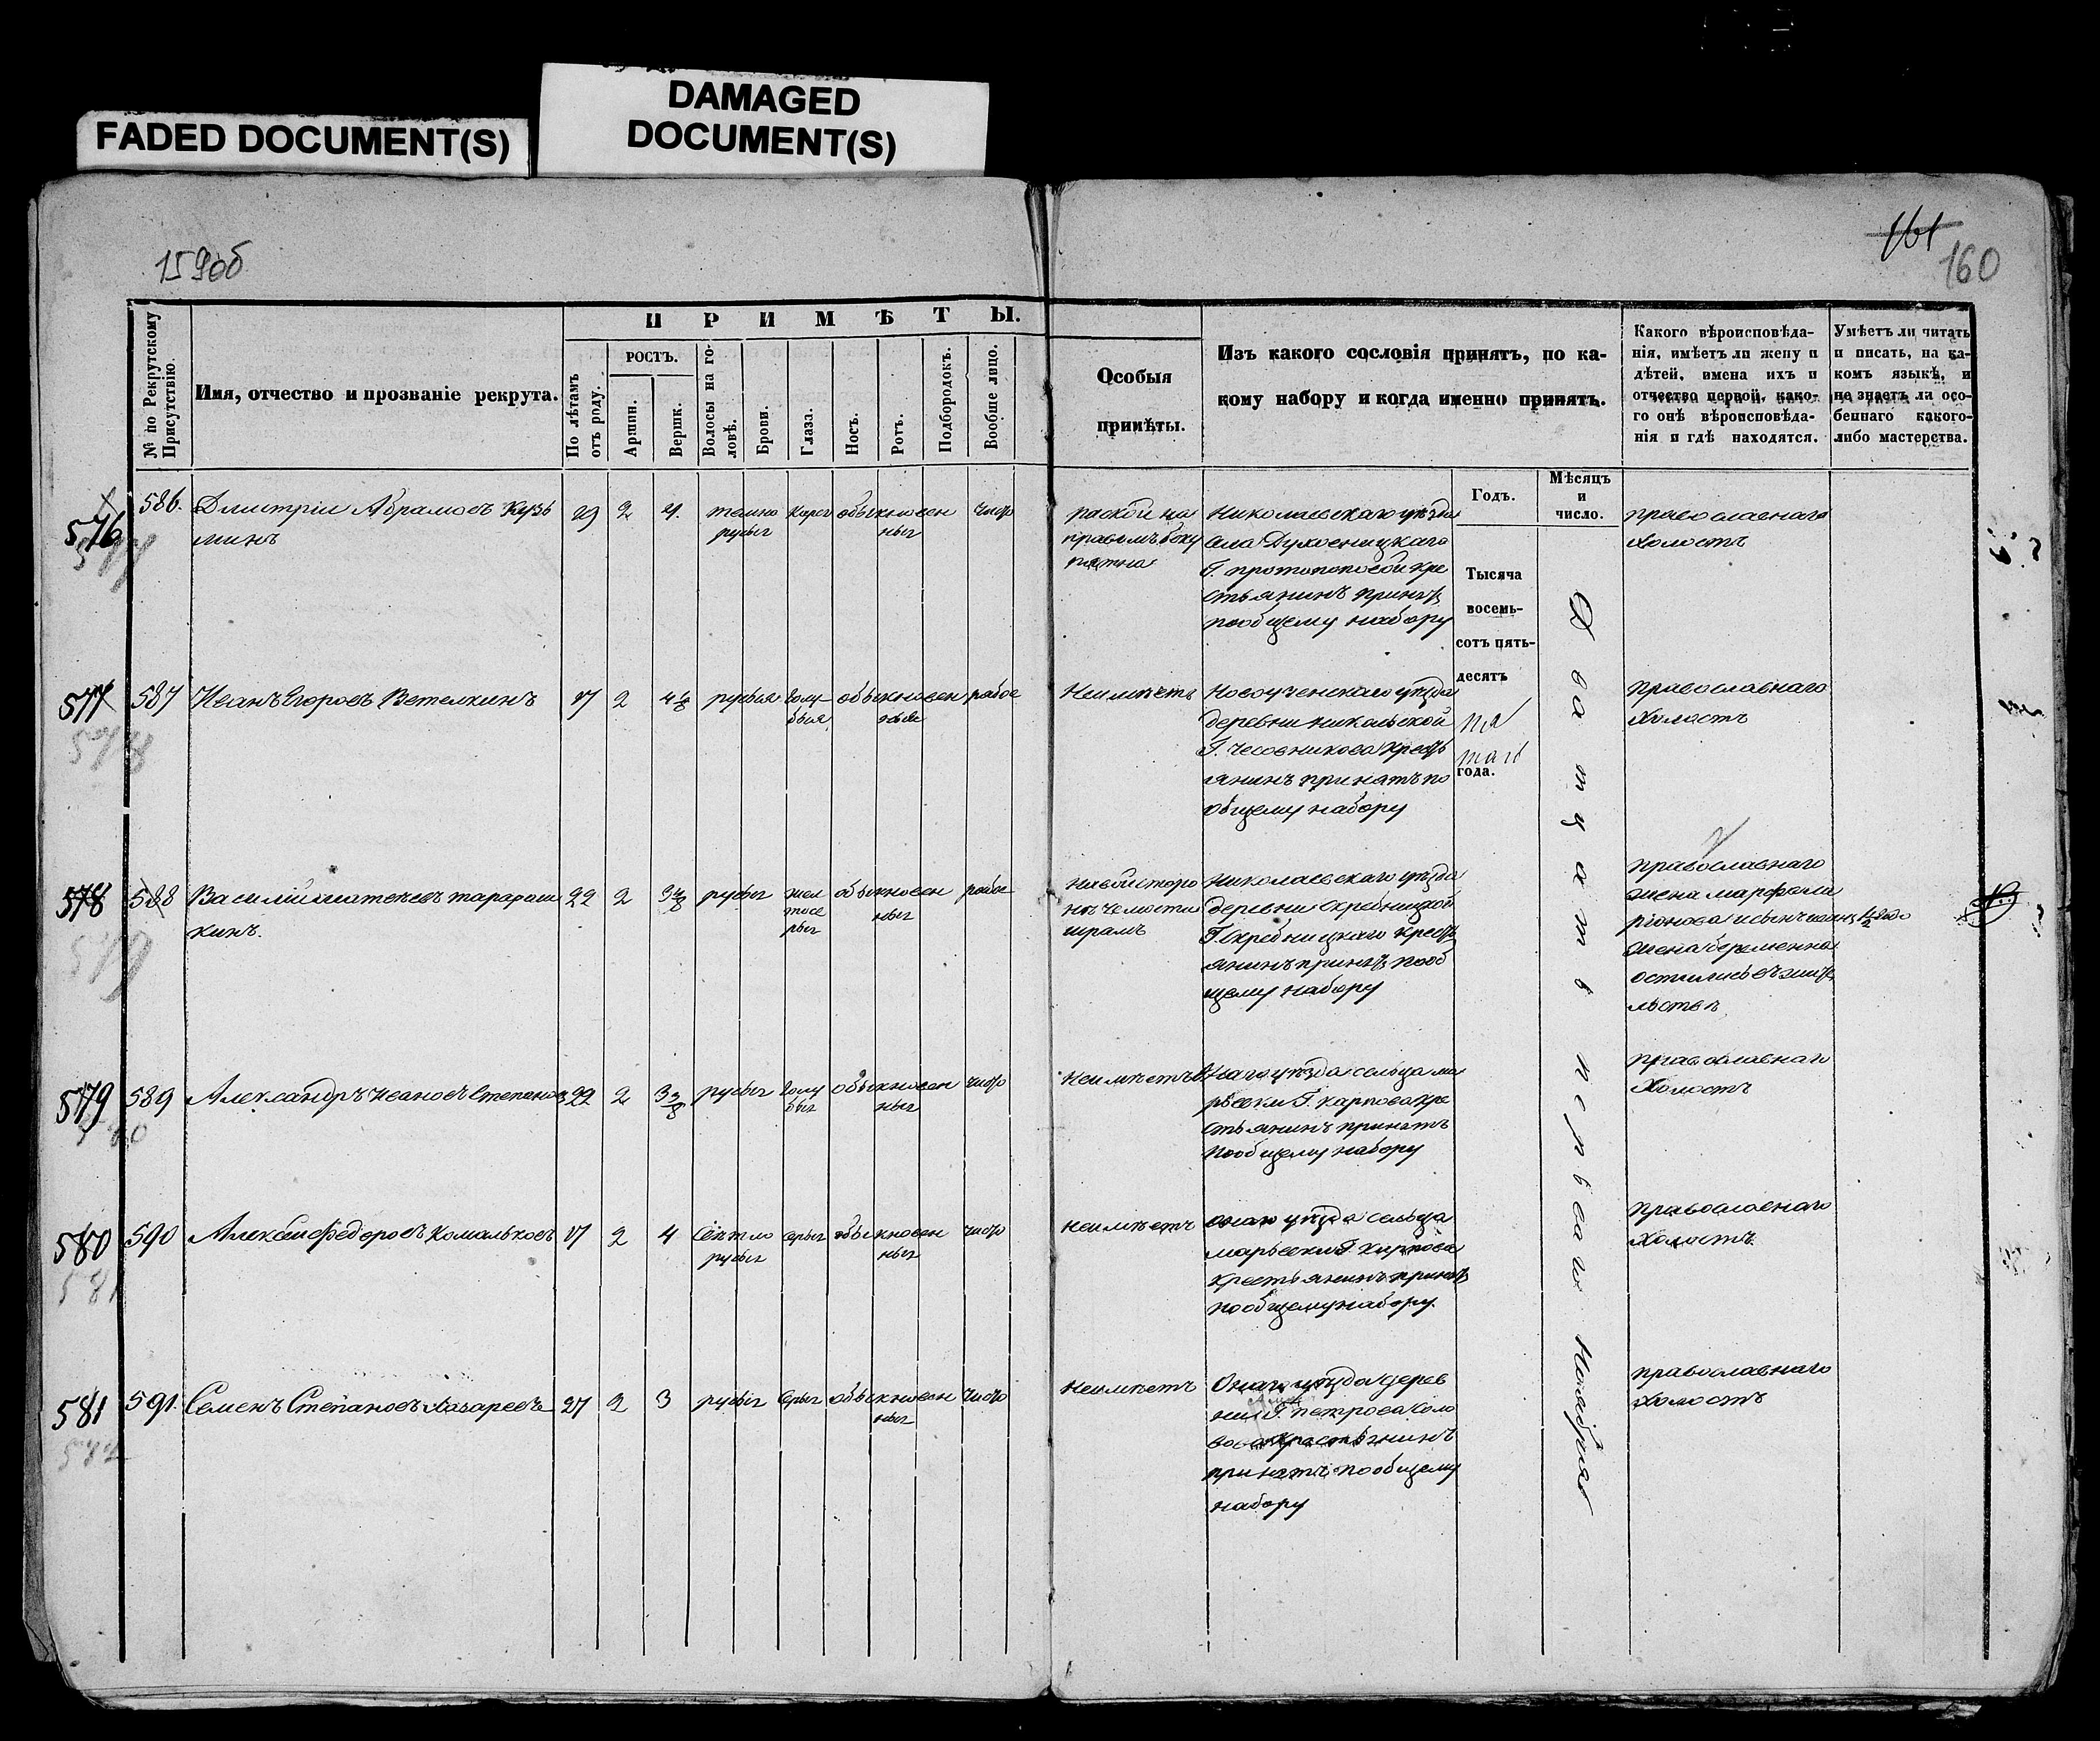 FADED DOCUMENT(S)
DAMAGED
DOCUMENT(S)
159об
161
160
№ по Рекрутскому
Присутствію.
Имя, отчество и прозваніе рекрута.
ПРИМѢТЫ.
По лѣтамъ
отъ роду.
РОСТЪ.
Аршин.
Вершк.
Волосы на го-
ловѣ.
Брови.
Глаза.
Носъ.
Ротъ.
Подбородокъ.
Вообще лицо.
Особыя
примѣты.
Изъ какого сословія принятъ, по ка-
кому набору и когда именно принятъ.
Какого вѣроисповѣда-
нія, имѣетъ ли жену и
дѣтей, имена ихъ и
отчество первой, како-
го онѣ вѣроисповѣда-
нія и гдѣ находятся.
Умѣетъ ли читать
и писать, на ка-
комъ языкѣ, и
не знаетъ ли осо-
беннаго какого-
либо мастерства.
Годъ.
Мѣсяцъ
и
число.
Тысяча
восемь-
сотъ пять-
десятъ
пя
таго
года.
Двадцать перваго Ноября
576
577
586.
Дмитріи Абрамовъ Кузь
минъ
2
темно
русыя
каріи
обыкновен
ныи
чисто
на
правомъ боку
пятна
Николаевскаго уѣзда
села Духовницкаго
Г. протопоповои кре
стьянинъ принятъ
пообщему набору
православнаго
холостъ
577
578
587
Иванъ Егоровъ Ветелкинъ
2
русыя
голу
быя
обыкновен
ные
рабое
Неимѣетъ
Новоузенскаго уѣзда
деревни никольской
Г. Чесовникова кресть
янинъ принятъ по
общему набору
православнаго
Холостъ
578
579
588
Василій матвѣевъ тарараш
кинъ.
22
2
русыя
жел
тосе
рыя
обыкновен
ныи
рабое
шрамъ
Николаевскаго уѣзда
деревни Скребницкой
Г. Скребницкаго кресть
янинъ принятъ пооб
щему набору
православнаго
жена марфа
жена беременна
остались въ житель
льствѣ
579
580
589
Александръ Ивановъ Степановъ
22
2
3 3/8
русыя
голу
быя
обыкновен
ныи
чисто
Неимѣетъ
Онаго уѣзда сельца ма
рьевки Г. карпова кре
стьянинъ принятъ
пообщему набору
православнаго
Холостъ
580
581
590
Алексѣи Федоровъ Комальковъ
2
4
свѣтло
русыя
сѣрыя
обыкновен
ныи
чисто
неимѣетъ
онаго уѣзда сельца
марьевки Г. карпова
крестьянинъ принятъ
пообщему набору.
православнаго
Холостъ.
581
591.
Семенъ Степановъ Лазаревъ
2
3
русыя
сѣрыя
обыкновен
ныи
чисто
Неимѣетъ
Онаго уѣзда дерев
ни Г. петрова соло
вова крестьянинъ
принятъ пообщему
набору
православнаго
холостъ